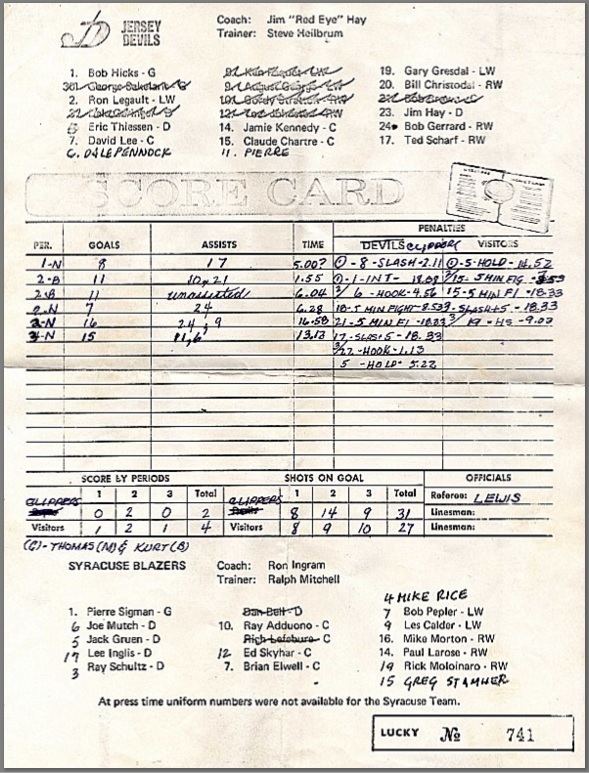 JERSEY DEVILS
Coach: Jim "Red Eye" Hay
Trainer: Steve Heilbrum
1. Bob Hicks - G
2. Ron Legault - LW
Eric Thiessen - D
7. David Lee - C
6. DALE PENNOCK
14. Jamie Kennedy - C
15. Claude Chartre - C
11. PIERRE
19. Gary Gresdal - LW
20. Bill Christodal - RW
23. Jim Hay - D
24. Bob Gerrard - RW
17. Ted Scharf - RW
SCORE CARD
PENALTIES
PER. GOALS ASSISTS TIME DEVILS CLIPPERS VISITORS
1-N 8 17 5.00? 1-8-SLASH-2.11 1-5-HOLD-14.52
2-B 11 10,21 1.55
2-B 11 unassisted 6.04 6-HOOK-4.56 15-5 MIN FI-18.33
2-N 7 24 6.28 SLASH+5-18.33
16 24,9 16.58 21-5 MIN FI-18.33 19-HS-9.03
15 11,6 13.13 17-SLAS+5-18.33
HOOK-1.13
5-HOLD-5.22
SCORE BY PERIODS SHOTS ON GOAL OFFICIALS
1 2 3 Total 1 2 3 Total Referee: LEWIS
CLIPPERS 0 2 0 2 CLIPPERS 8 14 9 31 Linesman:
Visitors 1 2 1 4 Visitors 8 9 10 27 Linesman:
(G)-THOMAS(N) & KURT(B)
SYRACUSE BLAZERS
Coach: Ron Ingram
Trainer: Ralph Mitchell
1. Pierre Sigman - G
6 Joe Mutch - D
5 Jack Gruen - D
17 Lee Inglis - D
3 Ray Schultz - D
Dan Bell - D
10. Ray Adduono - C
Rich Lefebure - C
12 Ed Skyhar - C
7. Brian Elwell - C
4 MIKE RICE
7 Bob Pepler - LW
9 Les Calder - LW
16. Mike Morton - RW
14. Paul Larose - RW
19 Rick Moloinaro - RW
15 GREG STAMLER
At press time uniform numbers were not available for the Syracuse Team.
LUCKY No 741